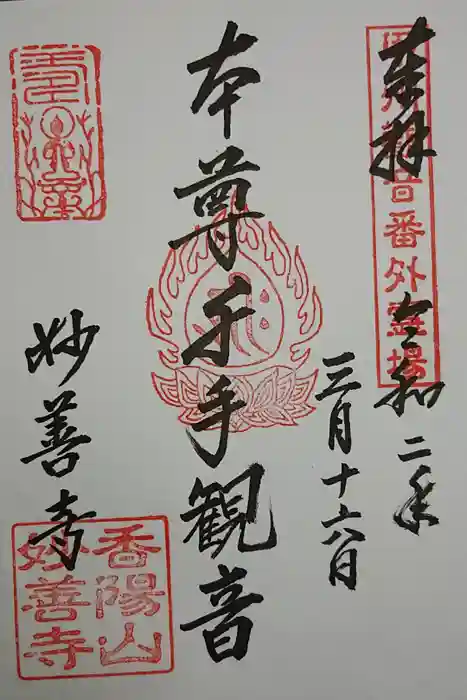 奉拝
令和二年
三月十六日
本尊千手観音
妙善寺
番外霊場
香陽山
妙善寺